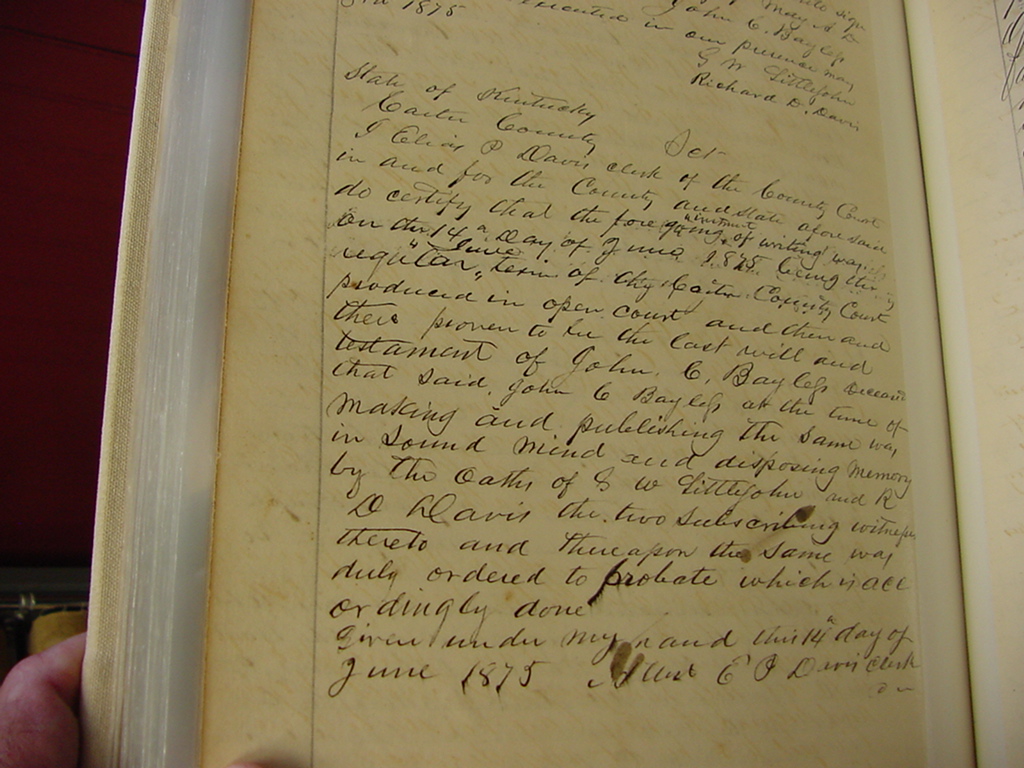 sign
3rd 1875 May A D
John C. Bayless
executed in our presence may
G W Littlejohn
Richard D. Davis
State of Kintucky
Carter County Sct
I Elias P Davis clerk of the County Court
in and for the County and State aforesaid
do certify that the foregoing instrument of writing was
on the 14th Day of June 1875 being the
regular "June" term of the Carter County Court
produced in open court and then and
there proven to be the last will and
testament of John. C. Bayless deceased
that said John C Bayless at the time of
making and publishing the same was
in sound mind and disposing memory
by the oaths of G W Littlejohn and R
D Davis the two subscribing witness
thereto and thereupon the same was
duly ordered to probate which is acc
ordingly done
Given under my hand this 14th day of
June 1875 Attest E P Davis clerk